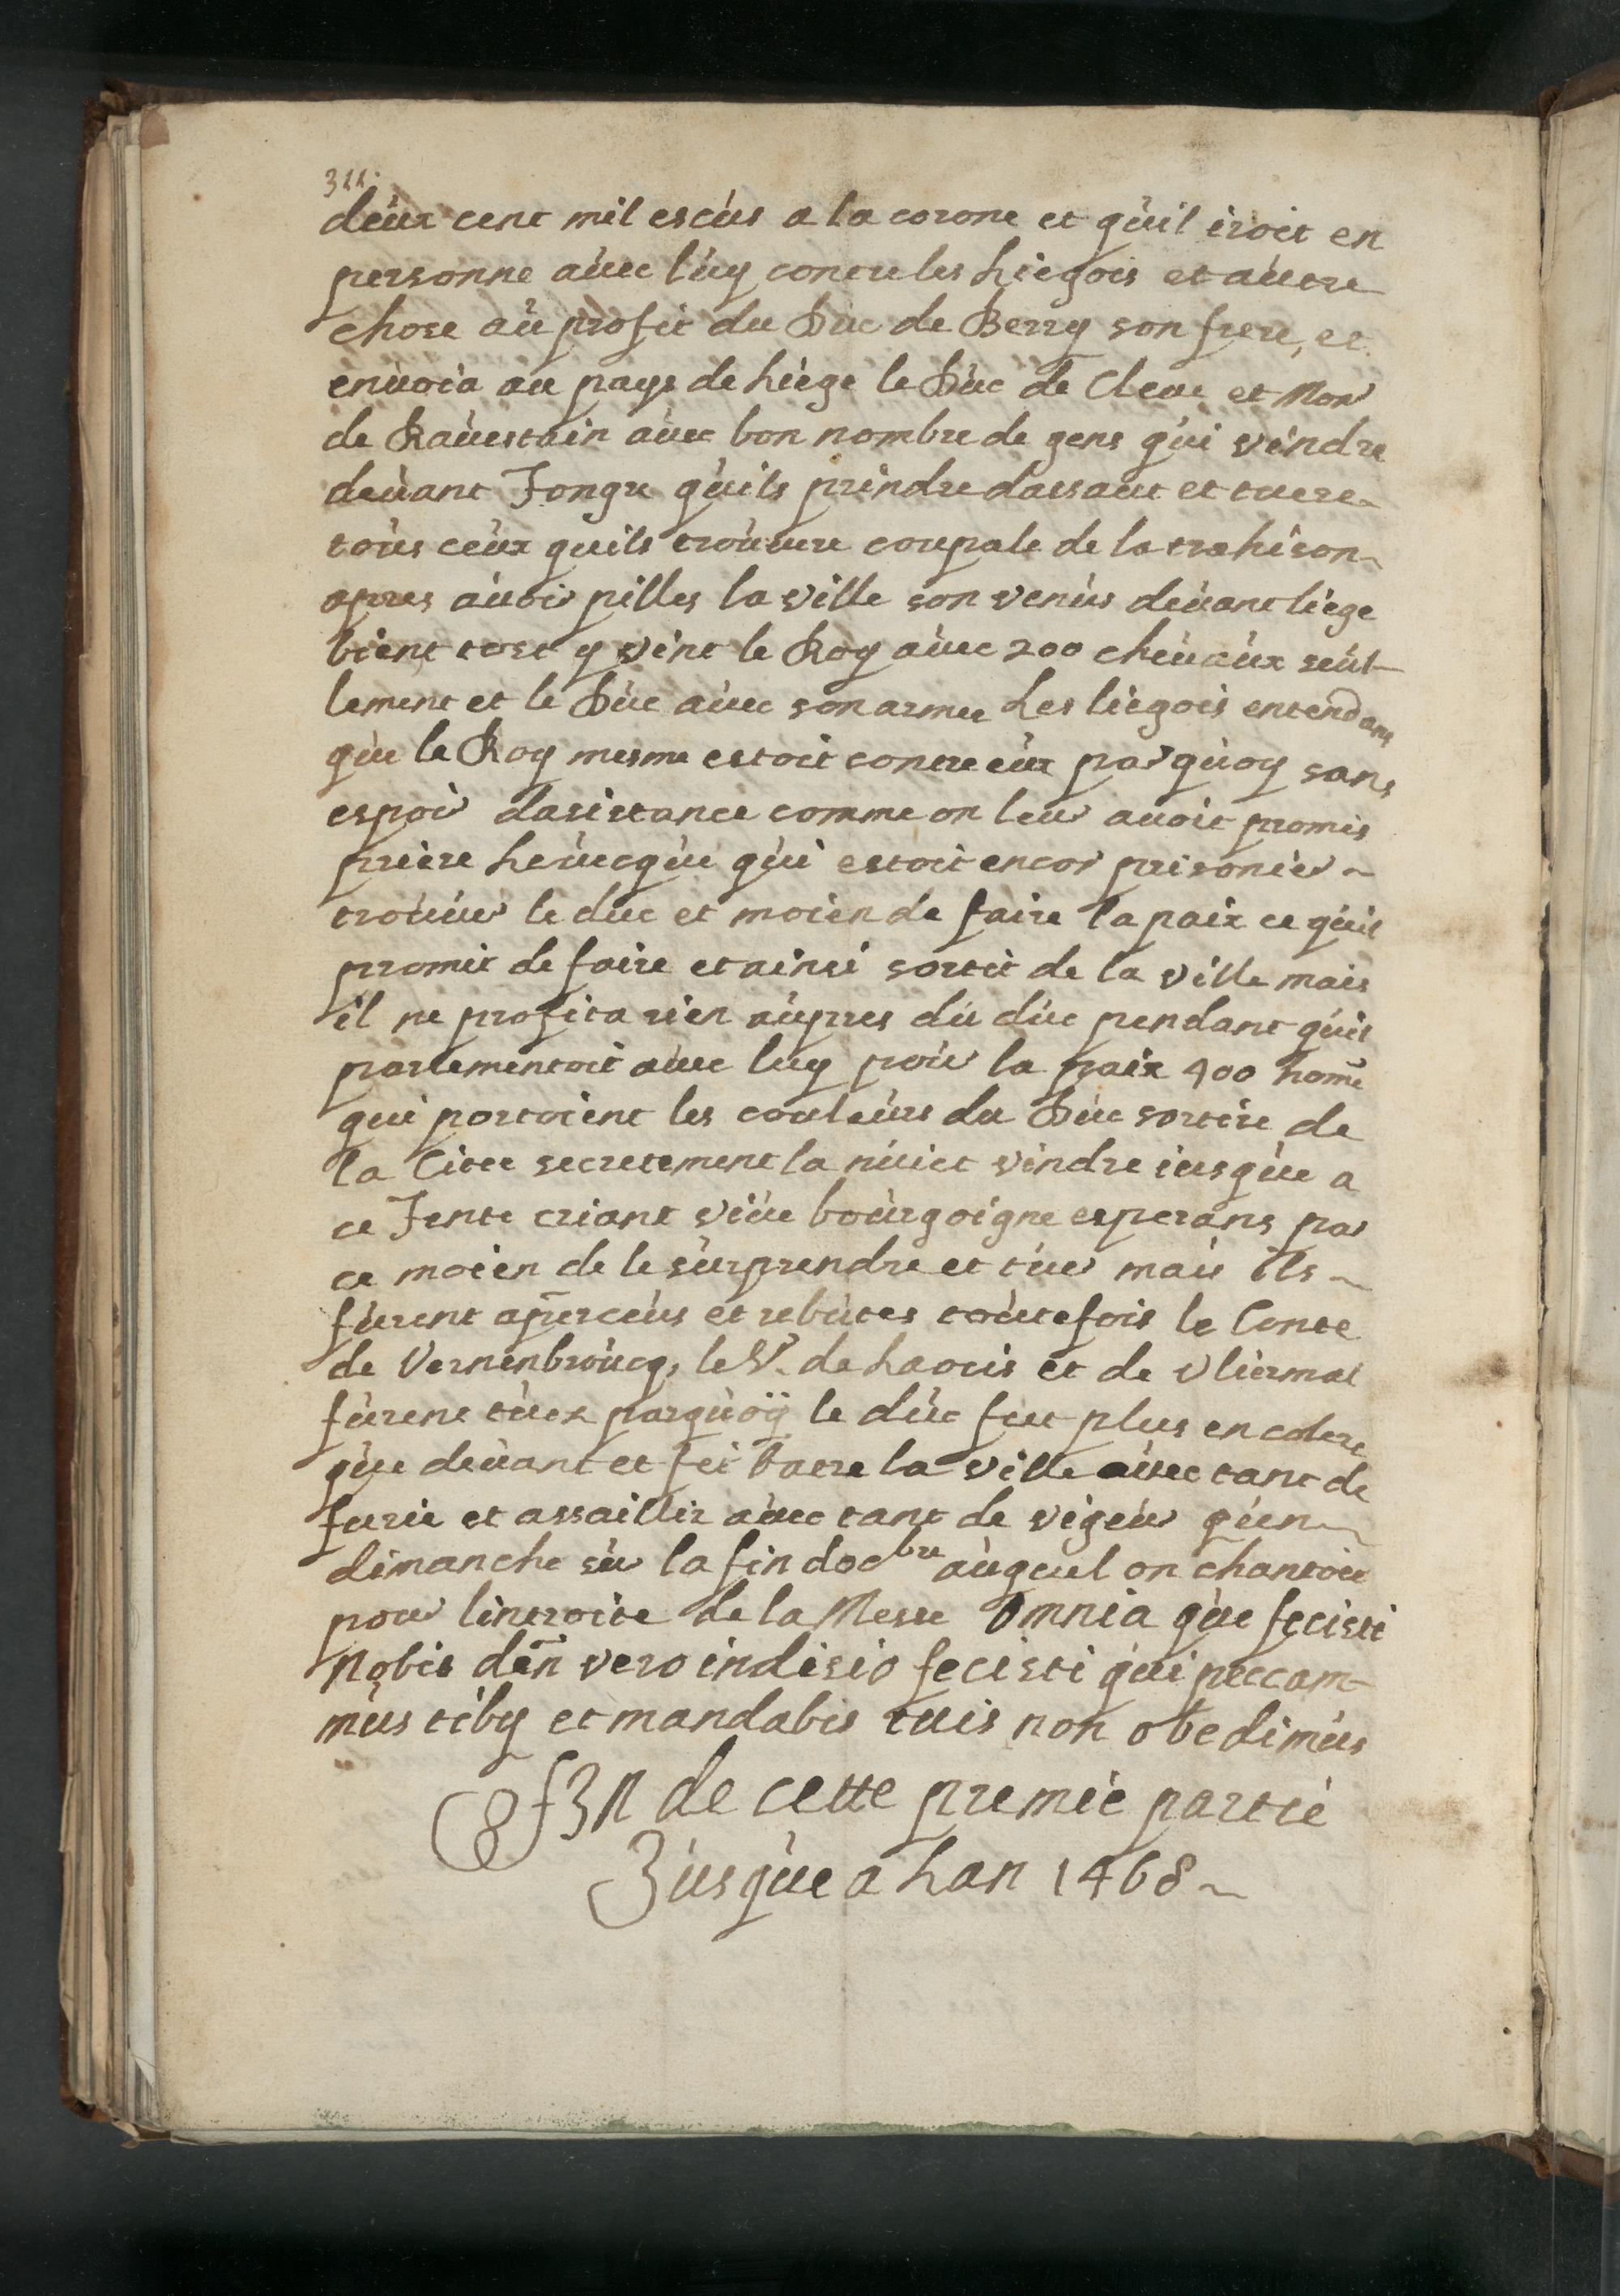 311.
deux cent mil escus a la corone et quil iroit en
personne auec luy contre les Liegois et autre
chose au profit du Duc de Berry son frere, et
enuoia au pays de Liege le Duc de Cleue et Mon^r
de Rauestain auec bon nombre de gens qui vindre
deuant Tongre quils prindre dassaut et tuere~
tous ceux quils trouuere coupale de la trahison~
apres auoir pilles la ville son venus deuant liege
bient tost y vint le Roy auec 200 cheuaux seul-
lement et le Duc auec son armee Les liegois entendans
que le Roy mesme estoit contre eux parquoy sans
espoir dasistance comme on leur auoit promis
priere Leuecque qui estoit encor prisonier~
trouuer le duc et moien de faire la paix ce quil
promit de faire et ainsi sortit de la ville mais
il ne profita rien aupres du duc pendant quil
parlementoit auec luy pour la paix 400 home
qui portoient les couleurs du Duc sortire de
la Citee secretement la nuict vindre iusque a
ce Tente criant viue bourgoigne esperans par
ce moien de le surprendre et tuer mais ils~
furent aperceus et rebutes toutefois le Conte
de Vernenbroucq, le Sr. de Laouis et de Vliermal
furent tuex parquoÿ le duc fut plus en colere
que deuant et fit batre la ville auec tant de
furie et assaillir auec tant de vigeur quen~
dimanche sur la fin docbre auquel on chantoit
pour lintroite de la Messe Omnia que fecisti
Nobis dñe vero indisio fecisti qui peccam-
mus tiby et mandabis tuis non obedimus
fin de cette premie partie
Jusque a Lan 1468~